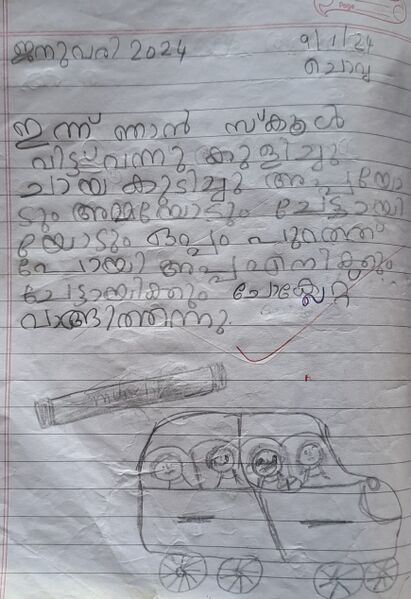 ജനുവരി 2024
9/1/24
ചൊവ്വ
ഇന്ന് ഞാൻ സ്കൂൾ
വിട്ട് വന്നു കുളിച്ചു
ചായ കുടിച്ചു അപ്പയോ
ടും അമ്മയോടും ചേട്ടായി
യോടും ഒപ്പം പുറത്ത്
പോയി അപ്പ എനിക്കും
ചേട്ടായിക്കും ചോക്ലേറ്റ്
വാങ്ങിത്തന്നു.
munch